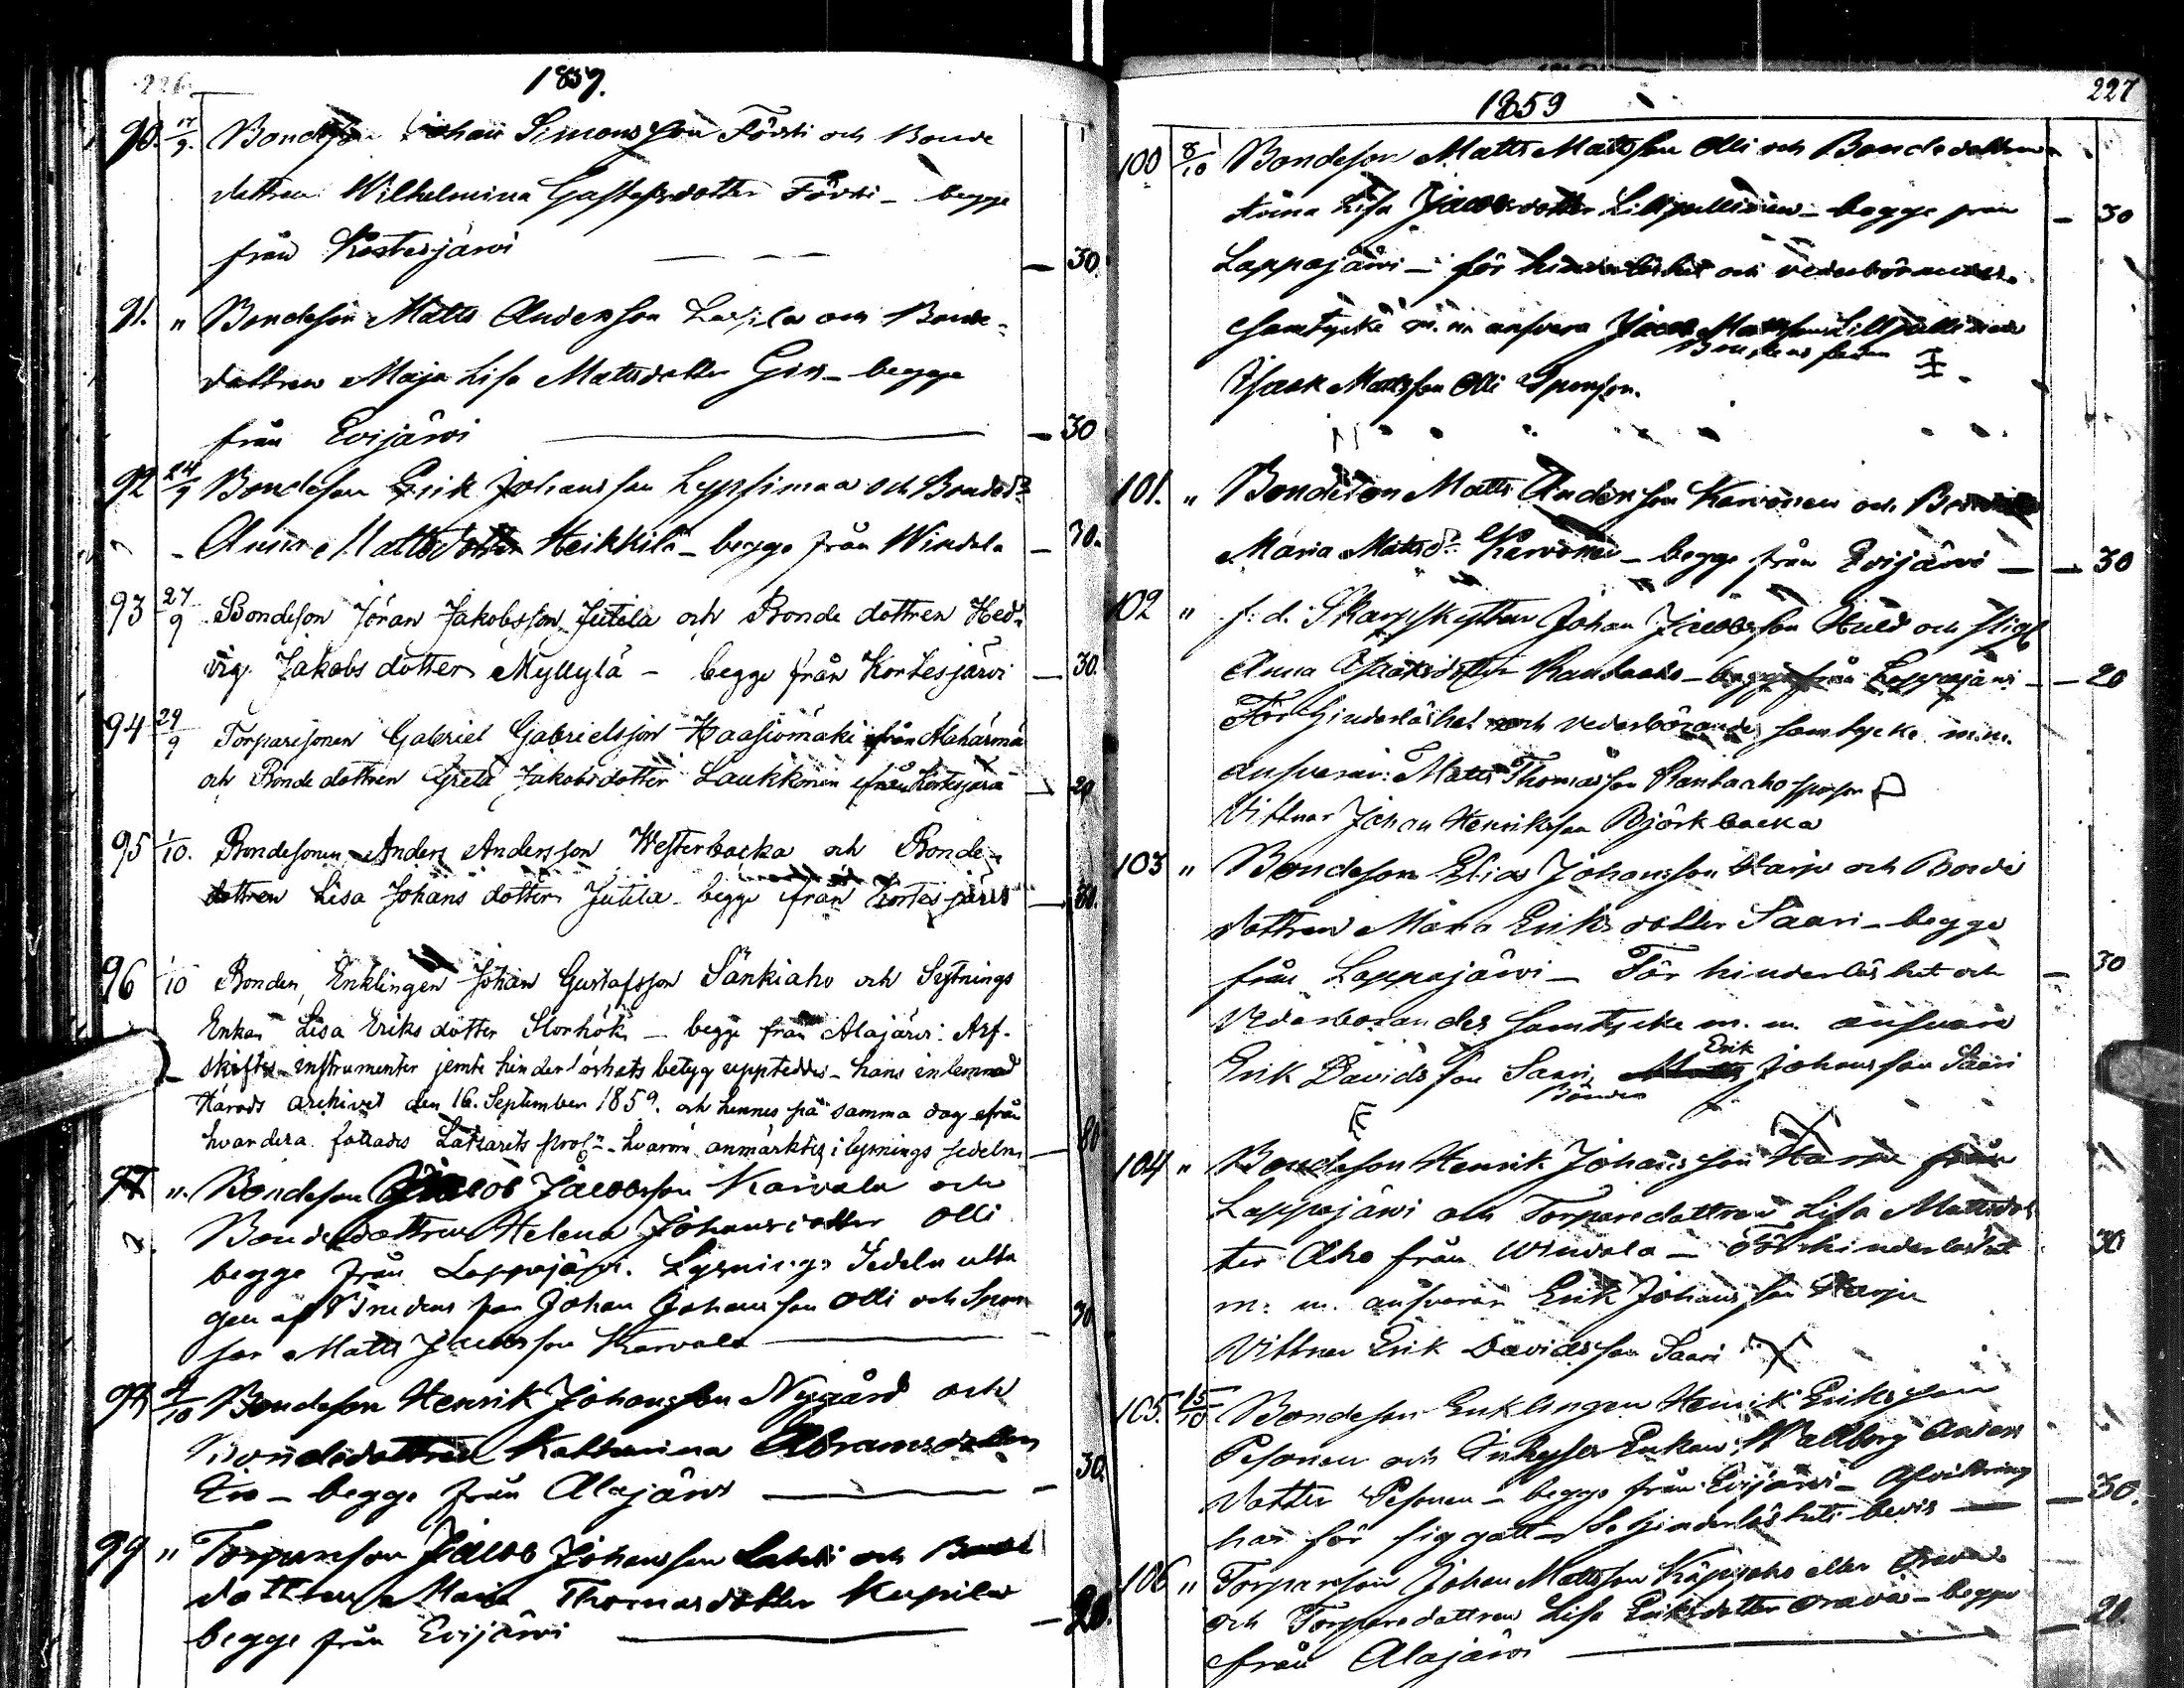 226.
1859.
90. 17/9. Bondeson Johan Simonsson Försti och Bonde
dottren Wilhelmina Gustafsdotter Försti - begge
från Kortesjärvi — 30.
91. " Bondeson Matts Andersson Lassila och Bonde-
dottren Maja Lisa Mattsdotter Girs - begge
från Evijärvi — 30
92 24/9 Bondeson Erik Johansson och Bondedr
Anna Mattsdotter Heikkilä - begge från Windala — 30.
93 27/9 Bondeson Jöran Jakobsson Jutila och Bonde dottren Hed-
vig Jakobs dotter Myllylä - begge från Kortesjärvi — 30.
94 29/9 Torparesonen Gabriel Gabrielsson Haasiomäki från Alahärmä
och Bonde dottren Greta Jakobsdotter Laukkonen från Kortesjärvi — 20
95 1/10. Bondesonen Anders Andersson Westerbacka och Bonde-
dottren Lisa Johans dotter Jutila - begge från Kortesjärvi — 30.
96 1/10 Bonden, Enklingen Johan Gustafsson Sänkiaho och Sytnings
Enkan Lisa Eriks dotter Storhök - begge från Alajärvi. Arf-
skiftes instrumenter jemte hinderlöshets betyg uppteddes - hans inlemnad
Härads archivet den 16. September 1859. och hennes på samma dag från
hvardera fattades Latzarets hvarom anmärktes i lysnings sedeln — 80
97 " Bondeson Jacob Jacobsson Karvala och
Bondedottren Helena Johansdotter Olli
begge från Lappajärvi. Lysnings Sedeln utta
gen af Brudens far Johan Johansson Olli och Spon
sor Matts Jacobsson Karvala — 30
98 /10 Bondeson Henrik Johansson Nygård och
Bondedottren Katharina Abramsdotter
- begge från Alajärvi — 30.
99 " Torpareson Jacob Johansson Lahti och Bonde
dottren Maria Thomasdotter Kupila
begge från Evijärvi — 20.
227
1859
100 8/10 Bondeson Matts Mattsson Olli och Bondedottren
Anna Lisa Jacobsdotter Lillpullinen - begge från — 30
Lappajärvi - för hinderlöshet och vederbörandes
samtycke m.m. ansvara Jacob Mattsson Lillpullinen
Brudens fader
Isaak Mattsson Olli Sponsor.
101. " Bondeson Matts Andersson Karvonen och
Maria Mattsdr Karvonen - begge från Evijärvi — 30
102 " f. d. Skarpskytten Johan Jacobsson Huld och pigl
Anna Isaaksdotter Rantaaho - begge från Lappajärvi — 20
För hinderlöshet och vederbörandes samtycke m.m.
ansvarar: Matts Thomasson Rantaaho sponsor
Vittnar Johan Henriksson Björkbacka
103 " Bondeson Elias Johansson Harju och Bonde
dottren Maria Eriksdotter Saari - begge
från Lappajärvi - För hinderlöshet och — 30
Vederbörandes samtycke m. m. ansvara
Erik
Erik Davidsson Saari, Matts Johansson Saari
Bönder
104 " Bondeson Henrik Johansson Harju från
Lappajärvi och Torparedottren Lisa Mattsdot
ter Aho från Windala - För hinderlöshet 30
m. m. ansvarar Erik Johansson Harju
Vittnar Erik Davidsson Saari
105. 15/10 Bondeson Enklingen Henrik Eriksson
Pesonen och Inhyses Enkan Wallborg Anders
dotter Pesonen - begge från Evijärvi - Afvittring
har för sig gått - Se Hinderlöshets bevis — 30.
106 " Torpareson Johan Mattsson Käpyaho eller Orava
och Torparedottren Lisa Eriksdotter Orava - begge
från Alajärvi — 20.